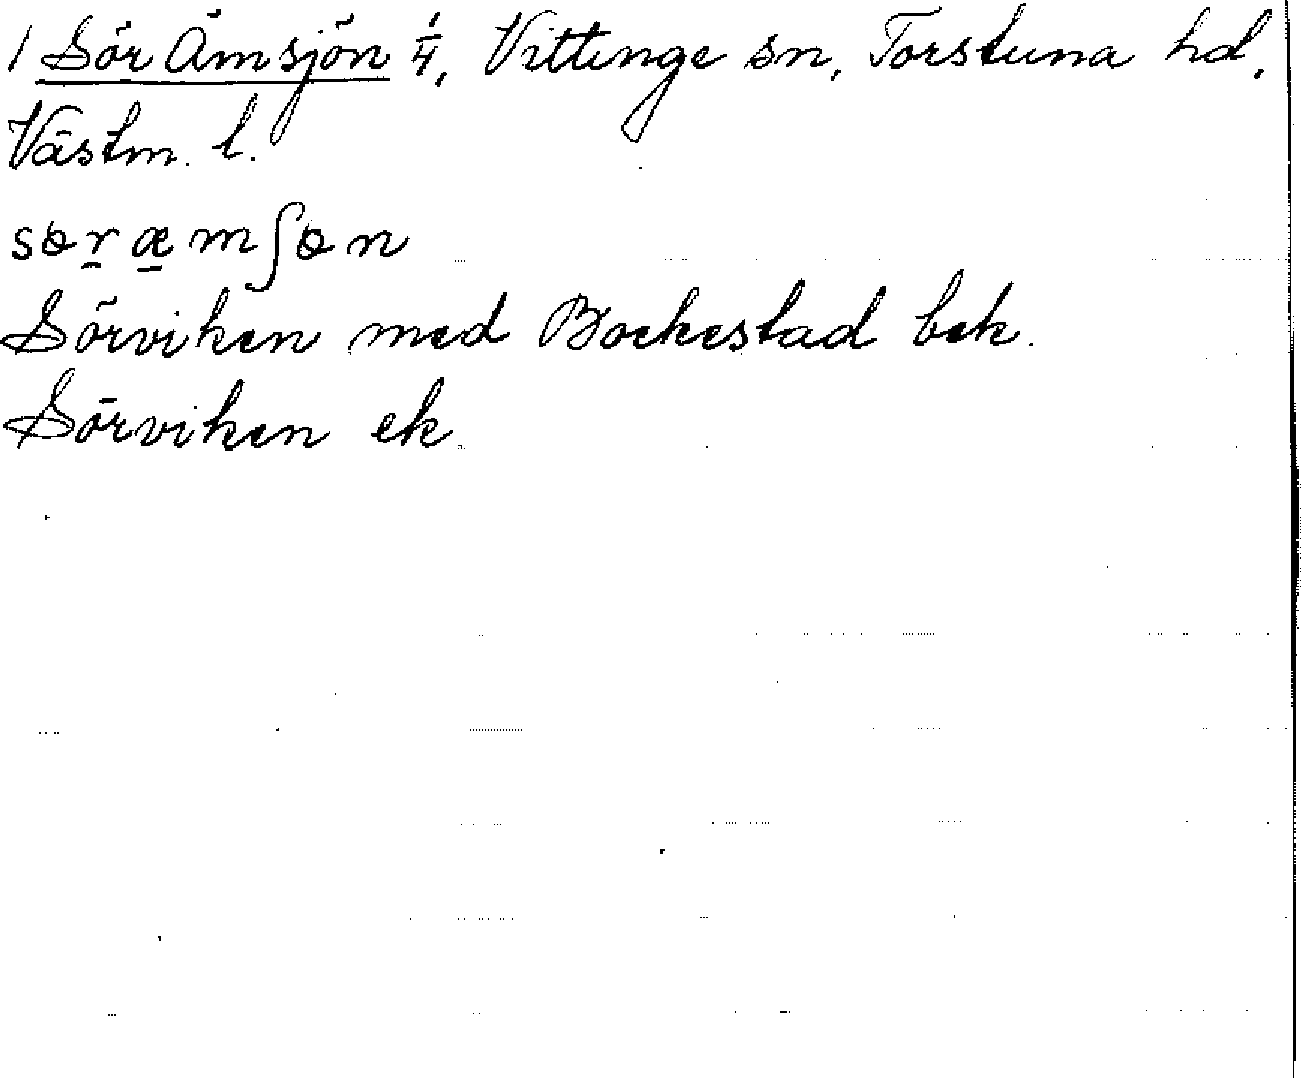 1 Sör Ämsjön 1/4, Vittinge sn, Torstuna hd,
Västm. l.
sɵræmʃɵn
Sörviken med Bockestad bek.
Sörviken ek.